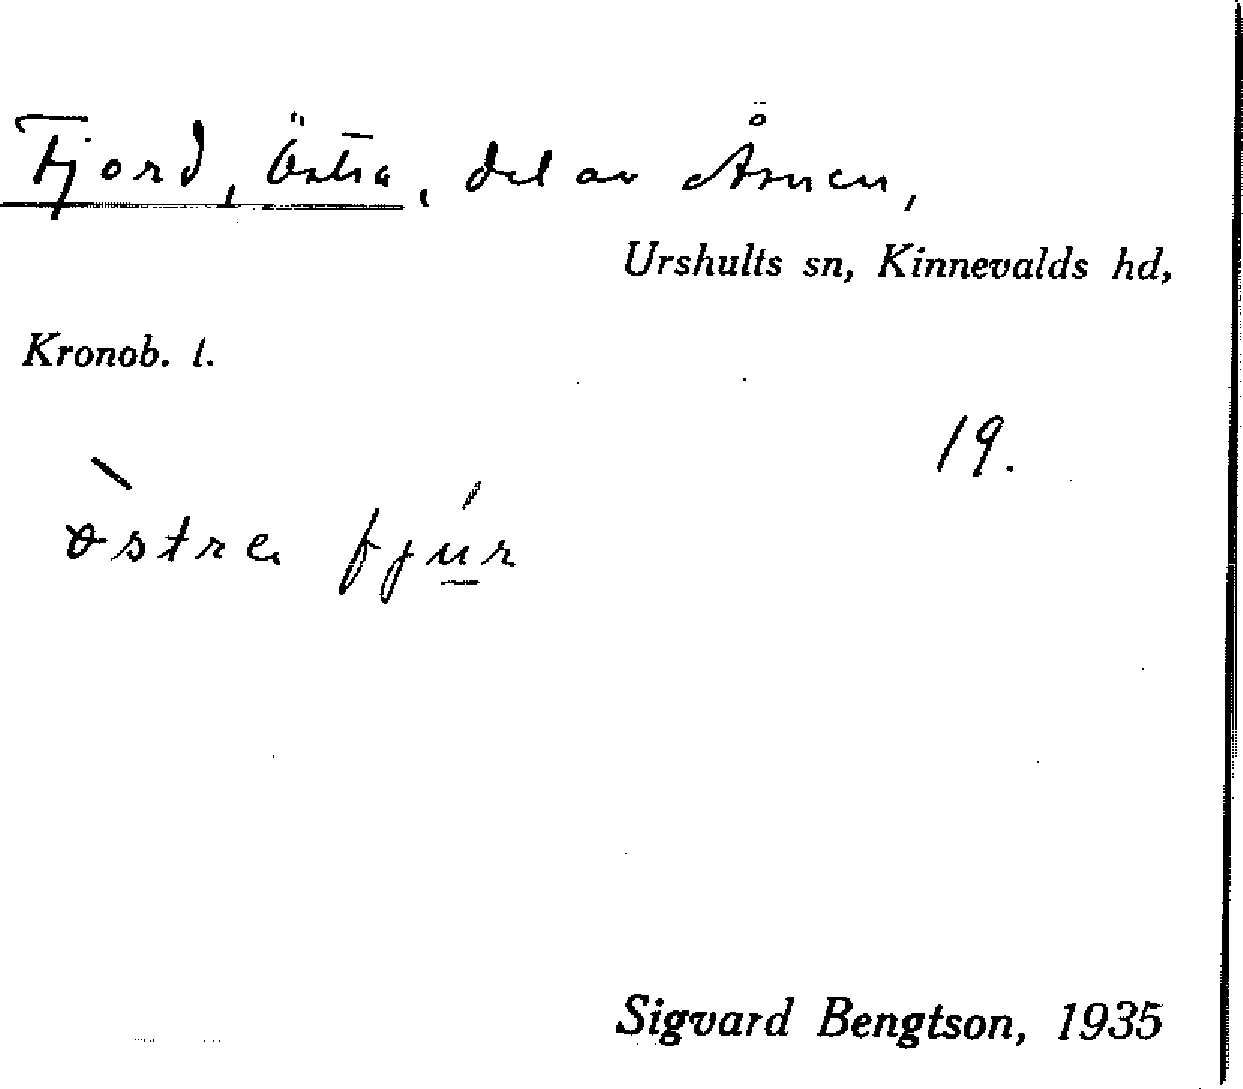 Fjord, Östra, del av Åsnen,
Urshults sn, Kinnevalds hd,
Kronob. l.
19.
östre fjur
Sigvard Bengtson, 1935